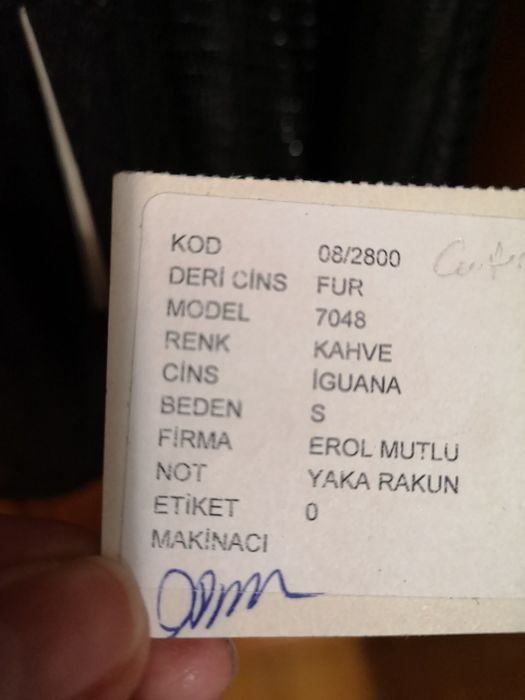 KOD 08/2800
DERİ CİNS FUR
MODEL 7048
RENK KAHVE
CİNS İGUANA
BEDEN S
FİRMA EROL MUTLU
NOT YAKA RAKUN
ETİKET 0
MAKİNACI